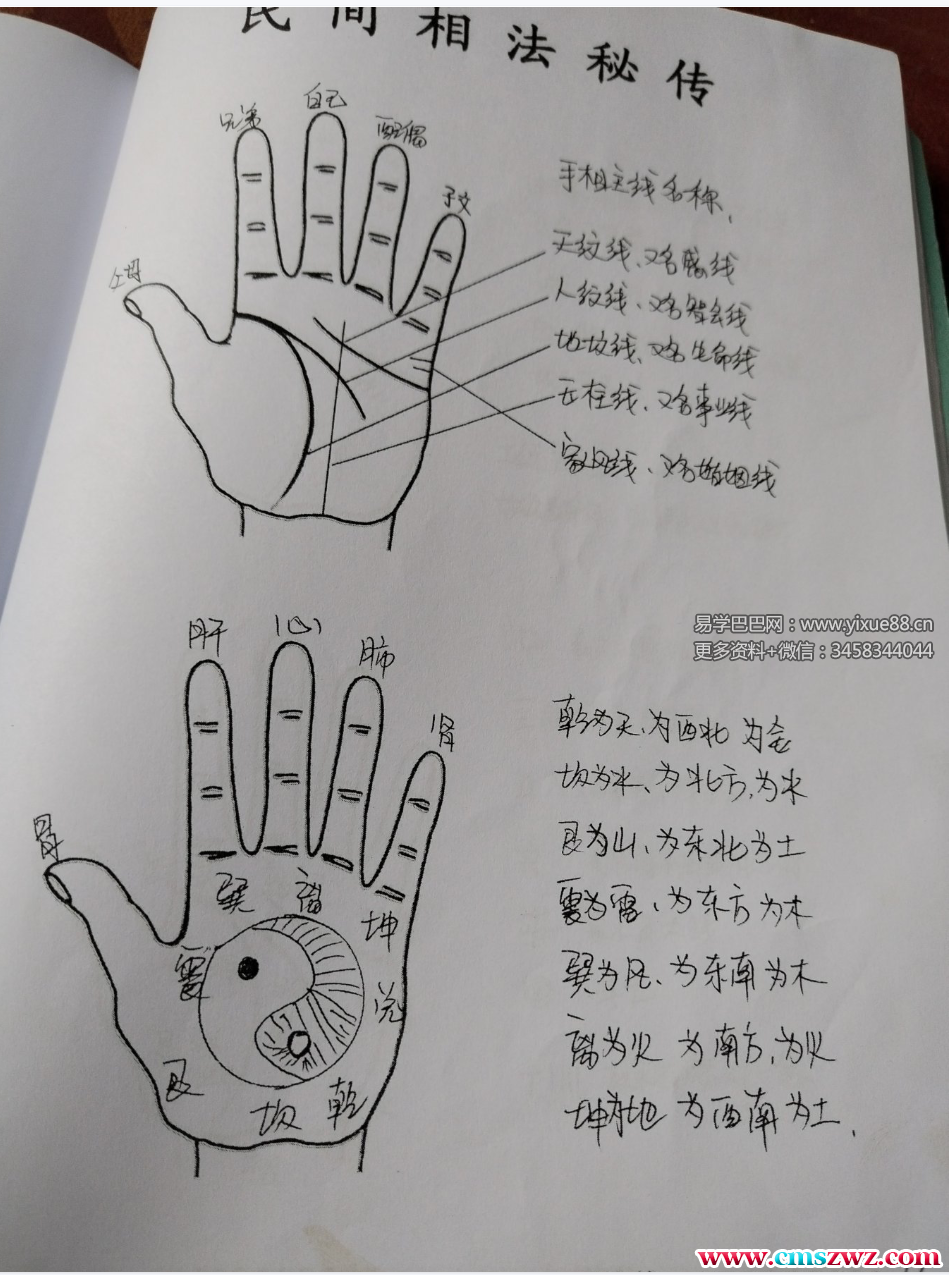 民间相法秘传
兄弟
自己
配偶
子女
父母
手相主线名称、
天纹线、又名感线
人纹线、又名智会线
地纹线、又名生命线
天柱线、又名事业线
家风线、又名婚姻线
易学巴巴网：www.yixue88.cn
更多资料+微信：3458344044
肝
心
肺
肾
胃
巽
离
坤
震
兑
艮
坎
乾
乾为天、为西北 为金
坎为水、为北方,为水
艮为山、为东北为土
震为雷、为东方为木
巽为风、为东南为木
离为火 为南方,为火
坤为地 为西南为土、
www.cmszwz.com